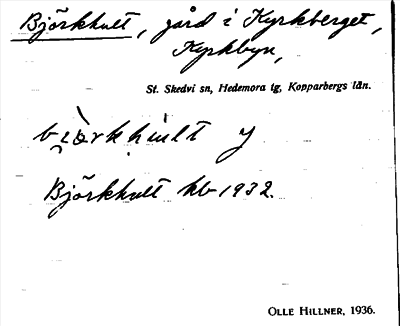 Björkhult, gård i Kyrkberget,
Kyrkbyn,
St. Skedvi sn, Hedemora tg, Kopparbergs län.
Björkhult kb 1932.
OLLE HILLNER, 1936.